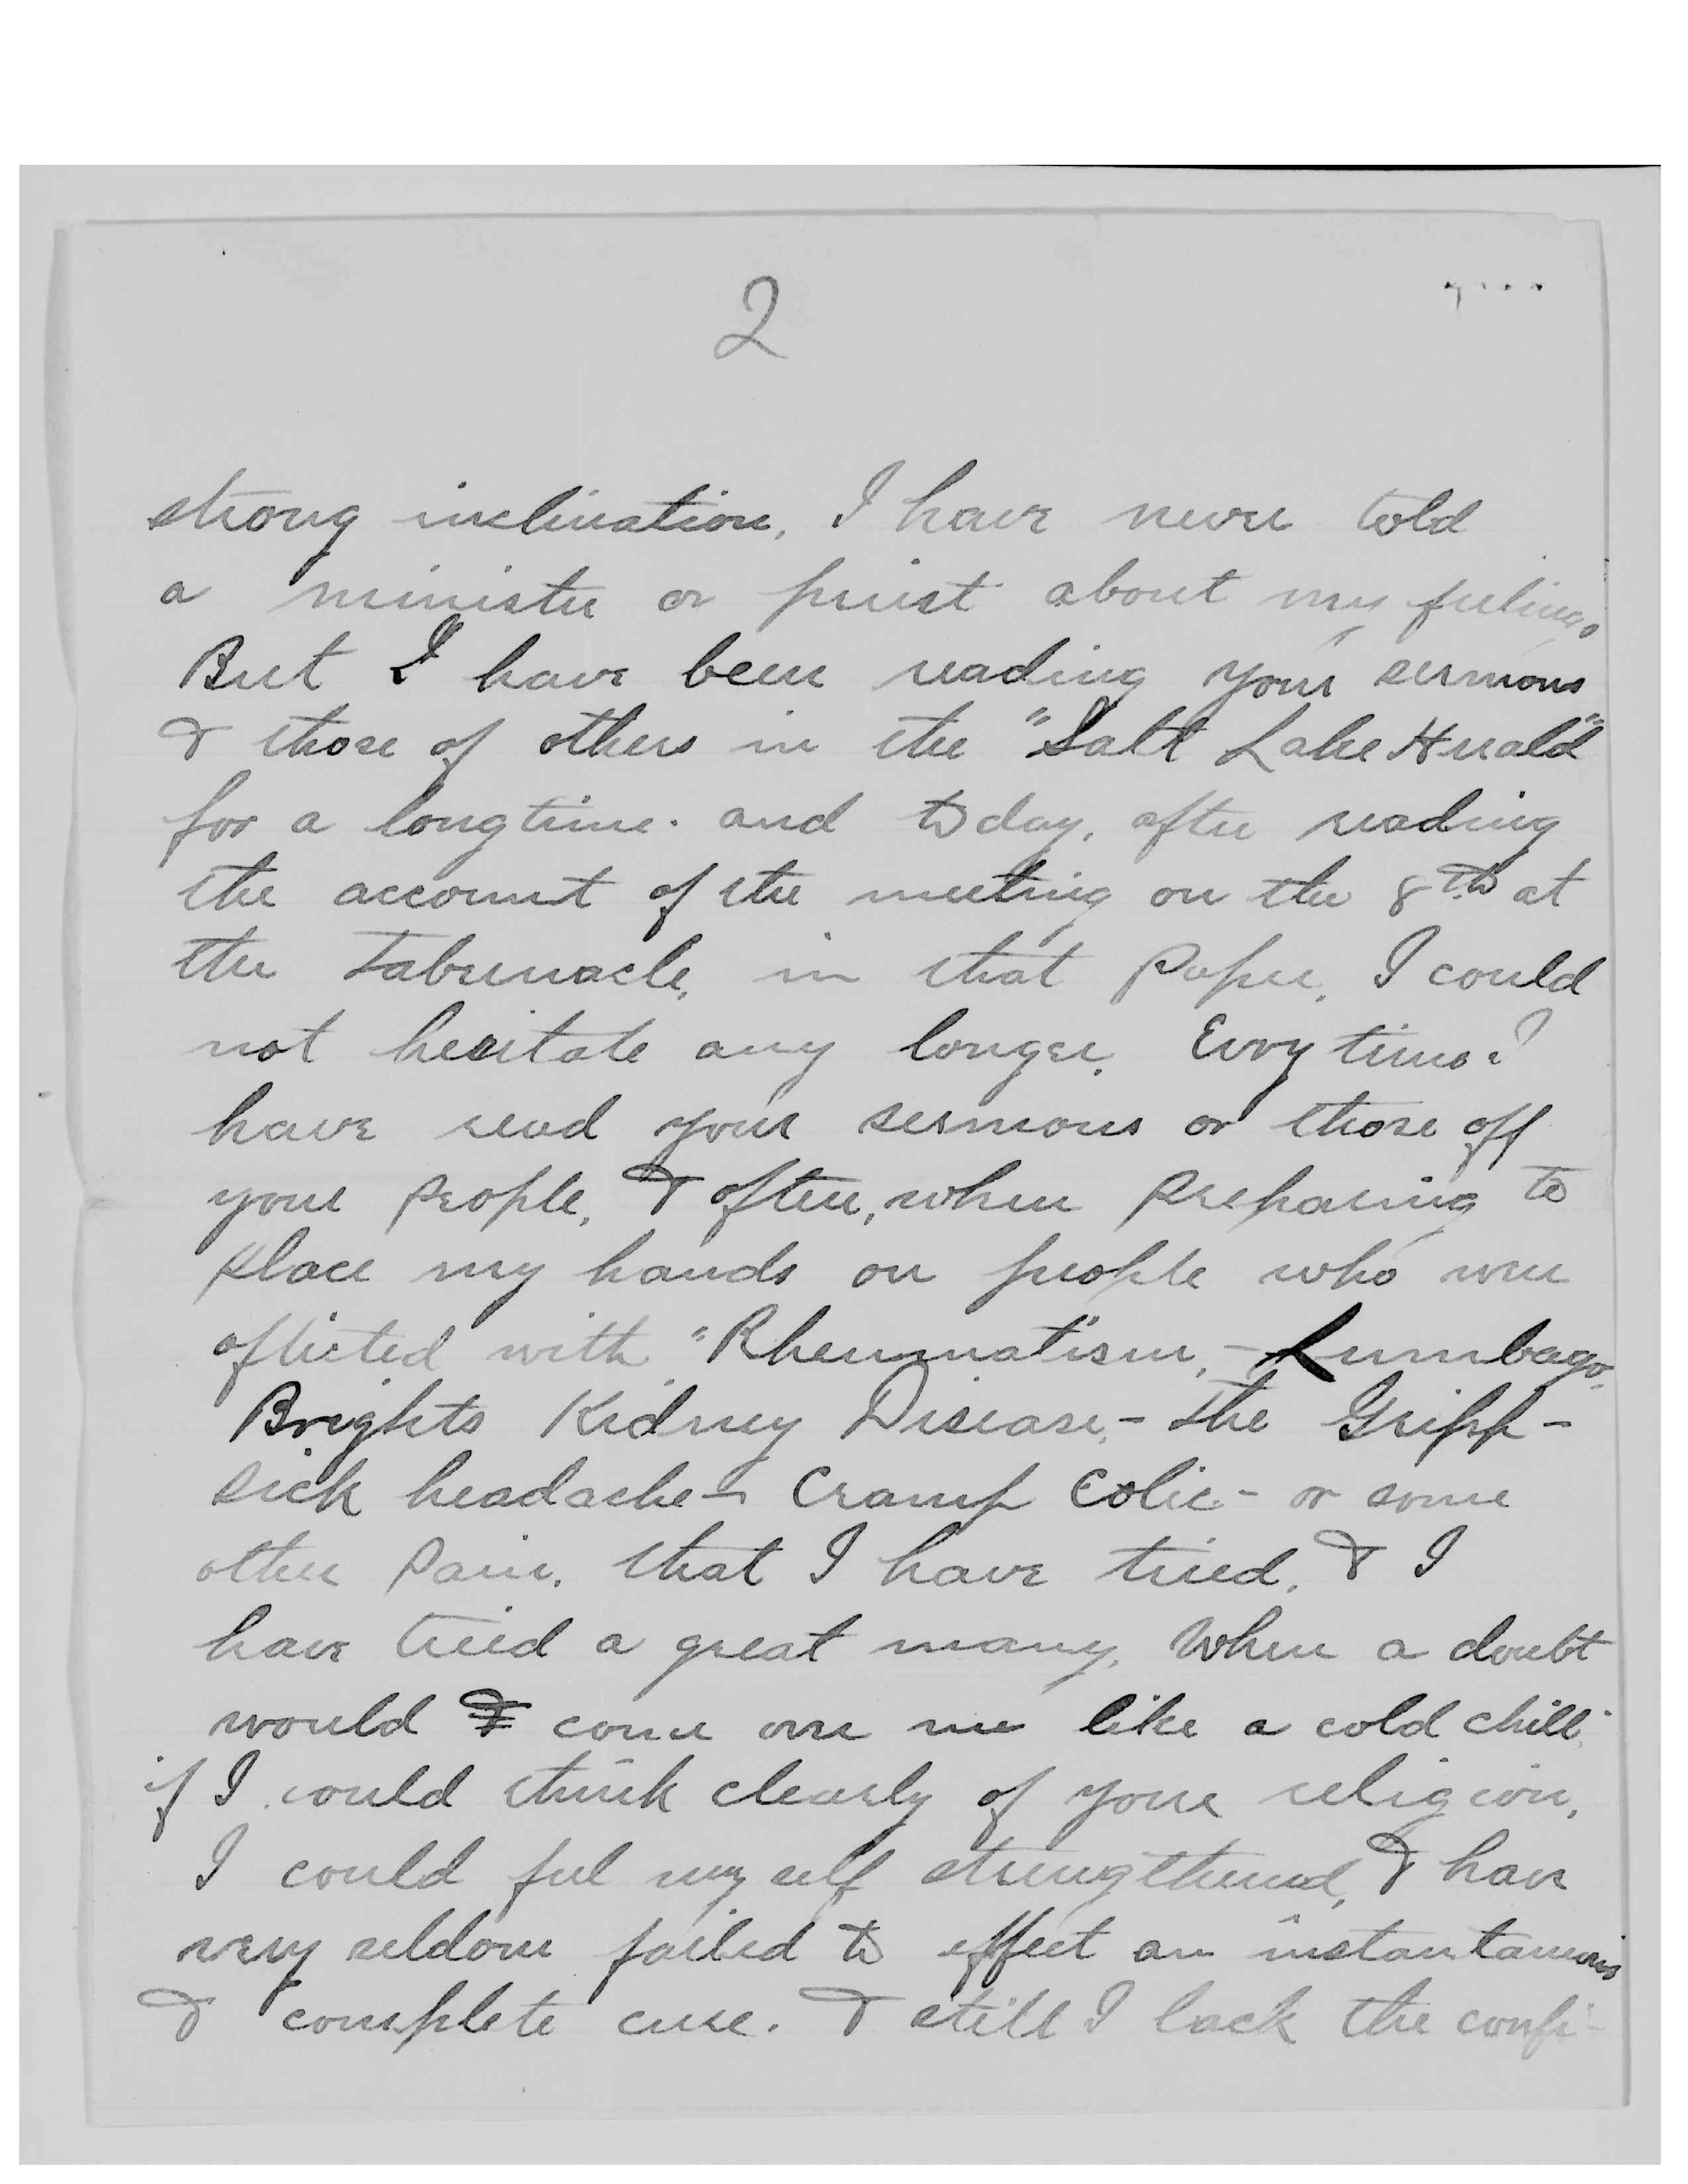 2
strong inclination, I have never told
a minister or priest about my feelings
But I have been reading your sermons
& those of others in the "Salt Lake Herald"
for a long time. and today, after reading
the account of the meeting on the 8th at
the Tabernacle, in that paper, I could
not hesitate any longer. Evry time I
have read your sermons or those off
your people, & often, when preparing to
place my hands on people who were
aflicted with "Rheumatism, - Lumbago,
Brights Kidney Disease, - the Gripp -
sick headache - Cramp Colic - or some
other pain, that I have tried, & I
have tried a great many, when a doubt
would & come over me like a cold chill
if I could think clearly of your religion,
I could feel my self strengthened, & have
very seldom failed to effect an instantaneous
& complete cure. & still I lack the confi-